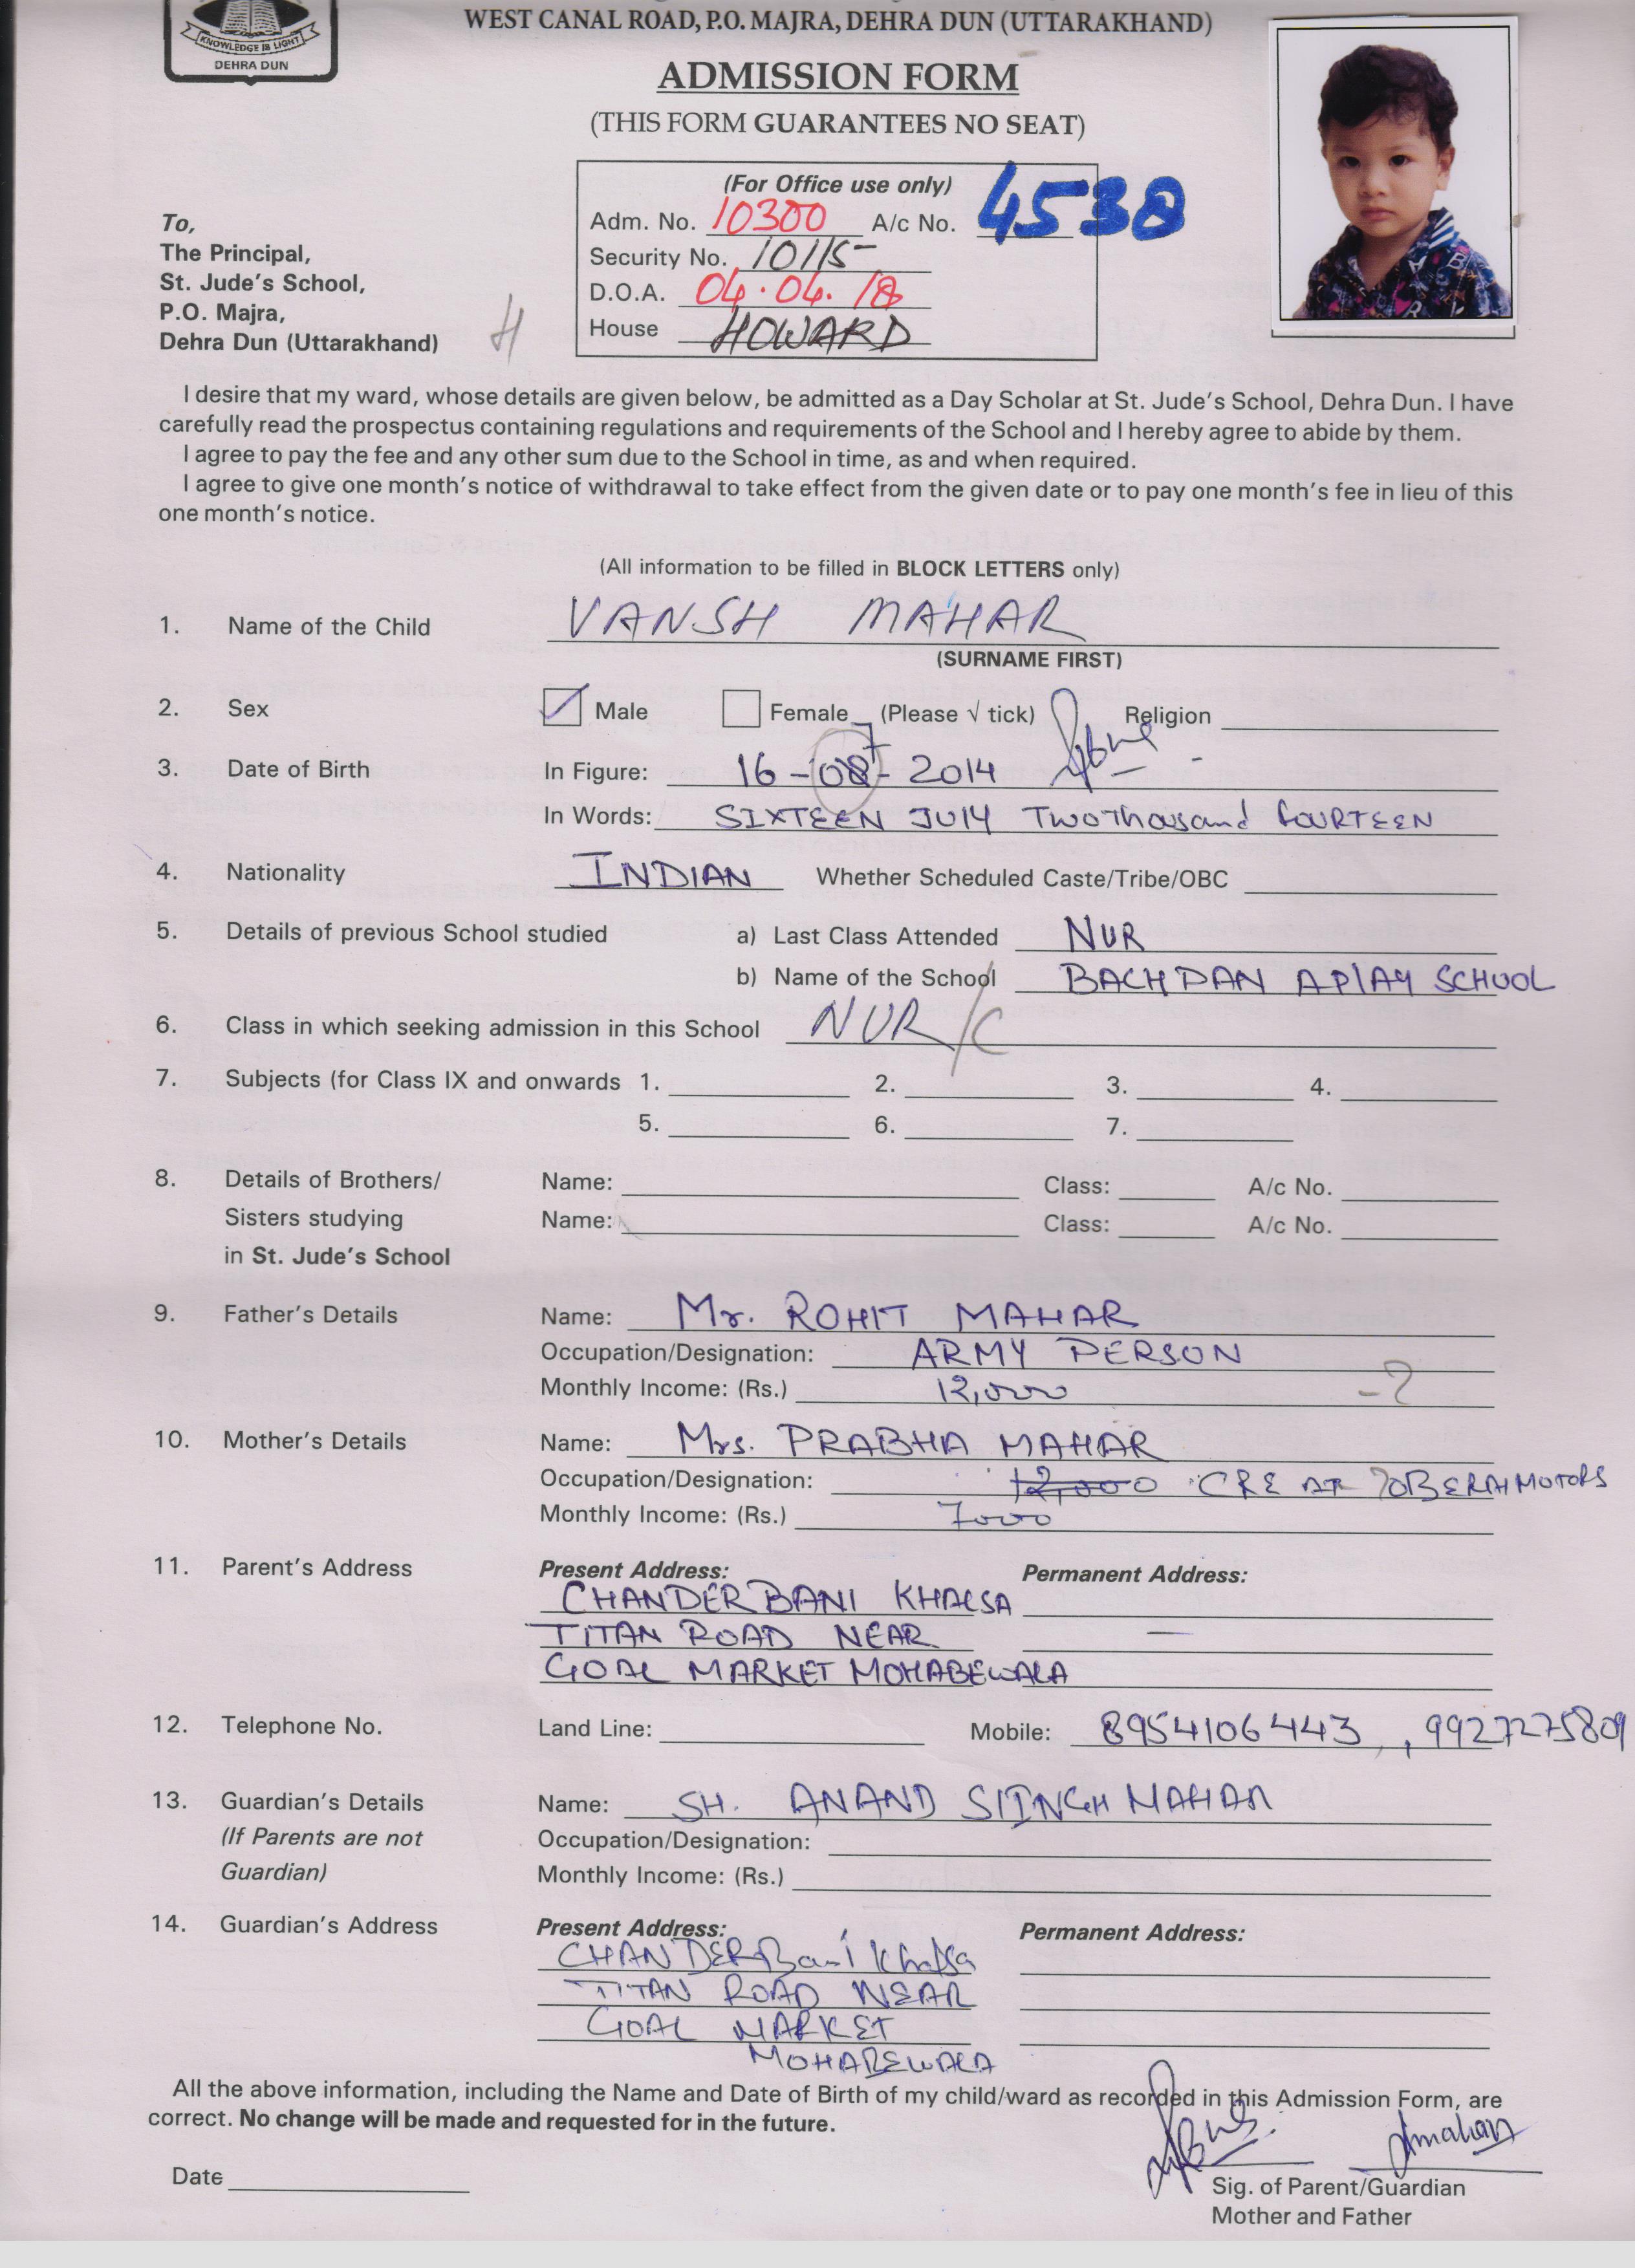 KNOWLEDGE IS LIGHT
DEHRA DUN
WEST CANAL ROAD, P.O. MAJRA, DEHRA DUN (UTTARAKHAND)
ADMISSION FORM
(THIS FORM GUARANTEES NO SEAT)
(For Office use only)
Adm. No. 10300 A/c No. 4538
Security No. 10115
D.O.A. 04.04.18
House HOWARD
To,
The Principal,
St. Jude's School,
P.O. Majra,
Dehra Dun (Uttarakhand)
H
I desire that my ward, whose details are given below, be admitted as a Day Scholar at St. Jude's School, Dehra Dun. I have
carefully read the prospectus containing regulations and requirements of the School and I hereby agree to abide by them.
I agree to pay the fee and any other sum due to the School in time, as and when required.
I agree to give one month's notice of withdrawal to take effect from the given date or to pay one month's fee in lieu of this
one month's notice.
(All information to be filled in BLOCK LETTERS only)
1. Name of the Child VANSH MAHAR
(SURNAME FIRST)
2. Sex Male Female (Please √ tick) Religion
3. Date of Birth In Figure: 16-08-2014
7
In Words: SIXTEEN JUlY TwoThousand fOURTEEN
4. Nationality INDIAN Whether Scheduled Caste/Tribe/OBC
5. Details of previous School studied a) Last Class Attended NUR
b) Name of the School BACHPAN A PlAY SCHOOL
6. Class in which seeking admission in this School NUR/C
7. Subjects (for Class IX and onwards 1. 2. 3. 4.
5. 6. 7.
8. Details of Brothers/ Name: Class: A/c No.
Sisters studying Name: Class: A/c No.
in St. Jude's School
9. Father's Details Name: Mr. ROHIT MAHAR
Occupation/Designation: ARMY PERSON
Monthly Income: (Rs.) 12,000 -?
10. Mother's Details Name: Mrs. PRABHA MAHAR
Occupation/Designation: 12,000 CRE AT OBERAI MOTORS
Monthly Income: (Rs.) 7000
11. Parent's Address Present Address: Permanent Address:
CHANDERBANI KHALSA
TITAN ROAD NEAR
GOAL MARKET MOHABEWALA
12. Telephone No. Land Line: Mobile: 8954106443, 9927275809
13. Guardian's Details Name: SH. ANAND SIINGH MAHAR
(If Parents are not Occupation/Designation:
Guardian) Monthly Income: (Rs.)
14. Guardian's Address Present Address: Permanent Address:
CHANDERBani Khalsa
TITAN ROAD NEAR
GOAL MARKET
MOHABEWALA
All the above information, including the Name and Date of Birth of my child/ward as recorded in this Admission Form, are
correct. No change will be made and requested for in the future.
Date
Sig. of Parent/Guardian
Mother and Father